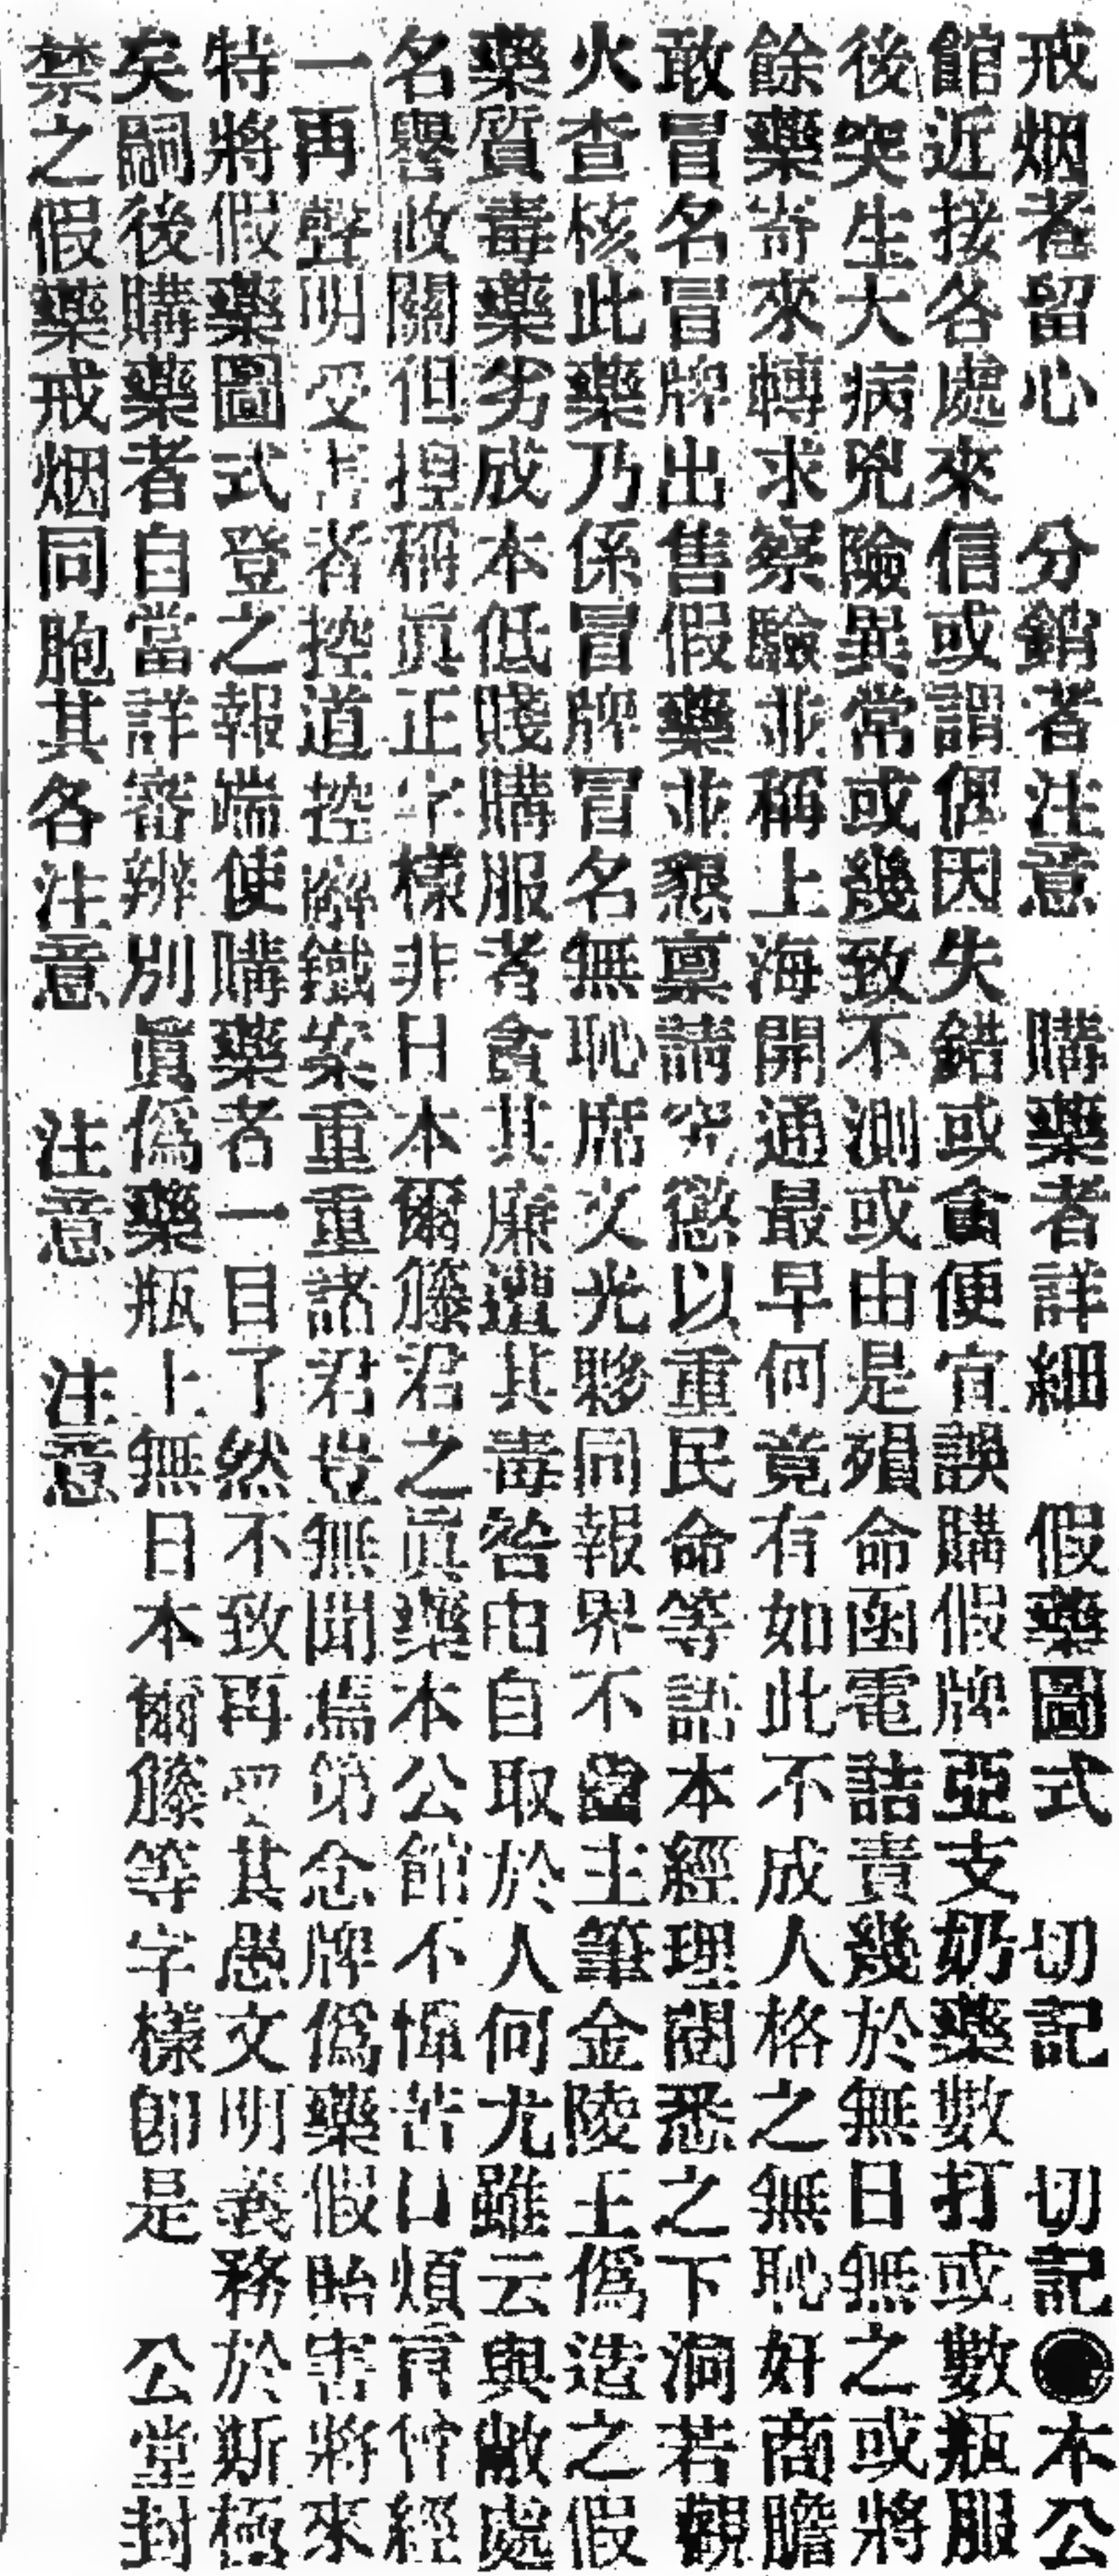 戒烟者留心　分銷者注意　購藥者詳細　假藥圖式　切記　切記●本公
館近接各處來信或謂偶因失錯或貪便宜誤購假牌亞支奶藥數打或數瓶服
後突生大病兇險異常或幾致不測或由是殞命函電詰責幾於無日無之或將
餘藥寄來轉求察驗並稱上海開通最早何竟有如此不成人格之無恥奸商膽
敢冒名冒牌出售假藥並懇稟請究懲以重民命等語本經理閱悉之下洞若觀
火查核此藥乃係冒牌冒名無恥席火光夥同報界不齒主筆金陵王偽造之假
藥質毒藥劣成本低賤購服者貪其廉遭其毒咎由自取於人何尤雖云與敝處
名譽攸關但捏稱真正字樣非日本爾籐君之真藥本公館不憚苦口煩言曾經
一再聲明受害者控道控廨鐵案重重諸君豈無聞焉第念牌偽藥假貽害將來
特將假藥圖式登之報端使購藥者一目了然不致再受其愚文明義務於斯極
矣嗣後購藥者自當詳審辨別真偽藥瓶上無日本爾籐等字樣即是　公堂封
禁之假藥戒烟同胞其各注意　注意　注意